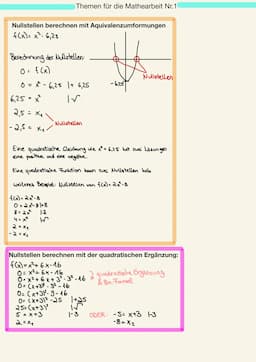 Themen für die Mathearbeit Nr.1
Nullstellen berechnen mit Äquivalenzumformungen
f(x) = x² - 6,25
Berechnung der Nullstellen
0 = f(x)
0 = x² - 6,25 | + 6,25
6,25 = x² | √
2,5 = x₁
- 2,5 = x₂
Nullstellen
Nullstellen
-6,25
Eine quadratische Gleichung wie x² = 6,25 hat zwei Lösungen
eine positive und eine negative.
Eine quadratische Funktion kann zwei Nullstellen haben
weiteres Beispiel: Nullstellen von f(x) = 2x² - 8
f(x) = 2x² - 8
0 = 2x² - 8 | + 8
8 = 2x² | :2
4 = x² | √
2 = x₁
-2 = x₂
Nullstellen berechnen mit der quadratischen Ergänzung:
f(x) = x² + 6x - 16
0 = x² + 6x - 16
0 = x² + 6x + 3² - 3² - 16
quadratische Ergänzung
& Bin. Formel
0 = (x+3)² - 3² - 16
0 = (x+3)² - 9 - 16
0 = (x+3)² - 25 | +25
25 = (x+3)² | √
5 = x + 3 | -3 ODER: -5 = x + 3 | -3
2 = x₁ -8 = x₂